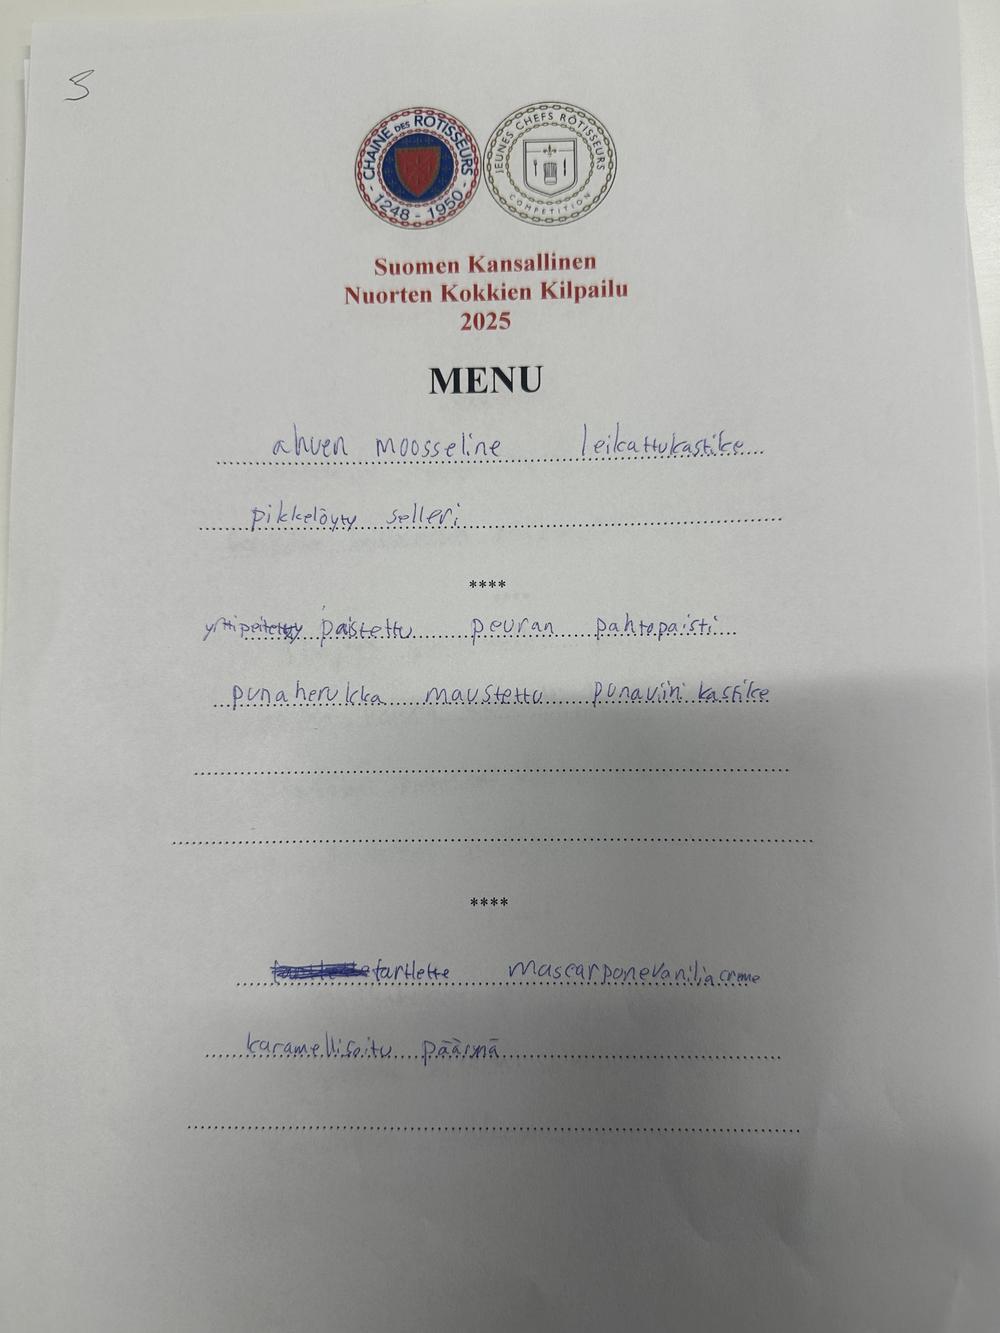 5
CHAINE DES ROTISSEURS
1248 - 1950
JEUNES CHEFS RÔTISSEURS
COMPETITION
Suomen Kansallinen
Nuorten Kokkien Kilpailu
2025
MENU
ahven moosseline leikattukastike
pikkelöyty selleri
****
paistettu peuran pahtopaisti
punaherukka maustettu punaviini kastike
****
tartlette mascarponevanilia creme
karamellisoitu päärynä